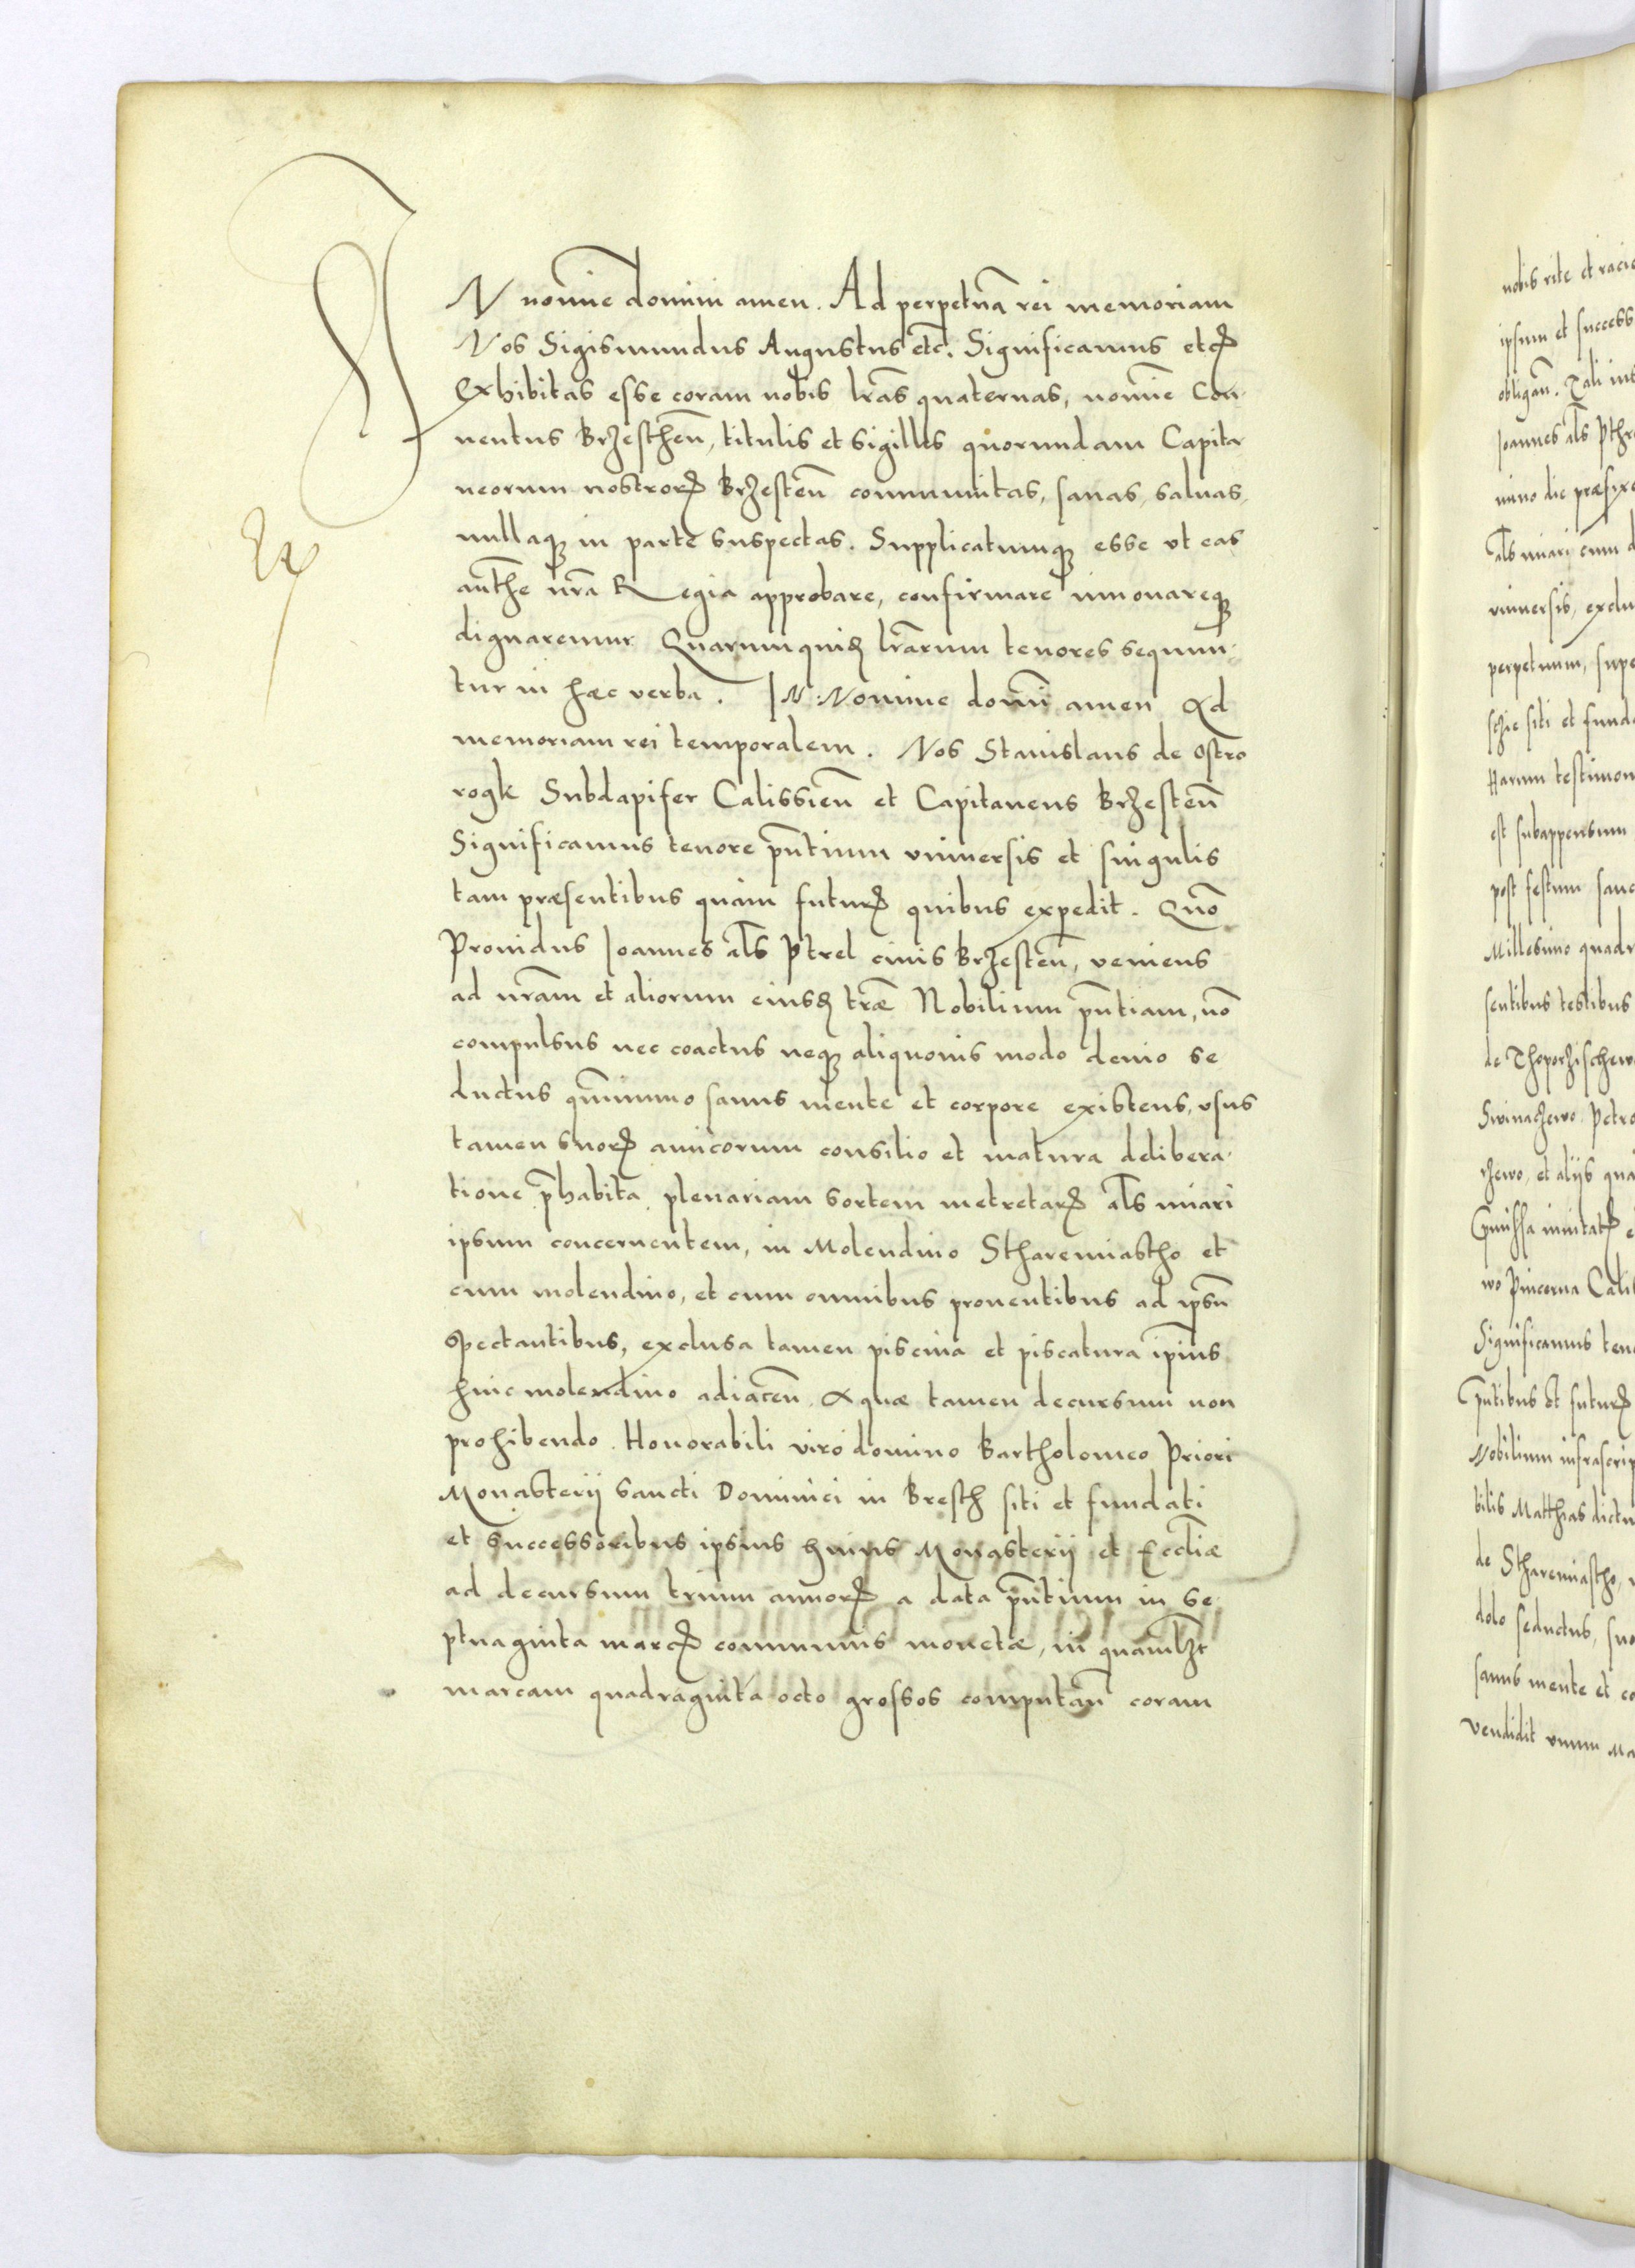 IN nomīe domini amen. Ad perpetuā rei memoriam
Nos Sigismundus Augustus etc̄. Significamus etcꝝ
Exhibitas esse coram nobis lr̄as quaternas, nomīe Con-
uentus Brzesthen̄, titulis et sigillis quorundam Capita
neorum nostroꝝ Brzesten̄ communitas, sanas, saluas,
nullaqꝫ in parte suspectas. Supplicatumqꝫ esse vt eas
aut̄he nr̄a Regia approbare, confirmare innouareqꝫ
dignaremur. Quarumquiꝫ lr̄arum tenores sequun-
tur in hæc verba. IN Nomine domī amen Ad
memoriam rei temporalem. Nos Stanislaus de Ostro
rogk Subdapifer Calissien̄ et Capitaneus Brzesten̄
Significamus tenore pn̄tium vniuersis et singulis
tam præsentibus quàm futurꝝ quibus expedit. Quō
Prouidus Joannes al̄s Ptrel ciuis Brzesten̄, veniens
ad nr̄am et aliorum eiusꝫ tr̄æ Nobilium pn̄tiam, nō
compulsus nec coactus neqꝫ aliquouis modo deuio se
ductus qn̄immo sanus mente et corpore existens, vsus
tamen suoꝝ amicorum consilio et matura delibera-
tione p̄habita, plenariam sortem metretaꝝ al̄s miari
ipsum concernentem, in Molendino Sthare miastho et
cum molendino, et cum omnibus prouentibus ad ip̄sū
spectantibus, exclusa tamen piscina et piscatura ip̄ius
huic molendino adiacen̄. Aquæ tamen decursum non
prohibendo. Honorabili viro domino Bartholomeo Priori
Monasterij Sancti Dominici in Bresth siti et fundati
et successoribus ipsius huius Monasterij et Eccl̄iæ
ad decursum trium annoꝝ a data pn̄tium in se
ptuaginta marcꝝ communis monetæ, in quamlꝫt
marcam quadraginta octo grossos computan̄ coram
Ex
nobis rite et racio
ipsum et success
obligan̄. Tali in
Joannes al̄s Pthr
mino die præfixo
al̄s miari cum
vniuersis, exclu
perpetuum, supe
sthie siti et funda
Harum testimon
est subappensum
post festum sanc
Millesimo quadr
sentibus testibus
de Thoporzischew
Swinaczewo Petro
rzewo, et alijs qua
wo Pincerna Calis
Significamus teno
pn̄tibus et futurꝝ
Nobilium infrascrip
bilis Matthias dictu
de Sthare miastho,
dolo seductus, suo
sanus mente et co
vendidit vnum Ma